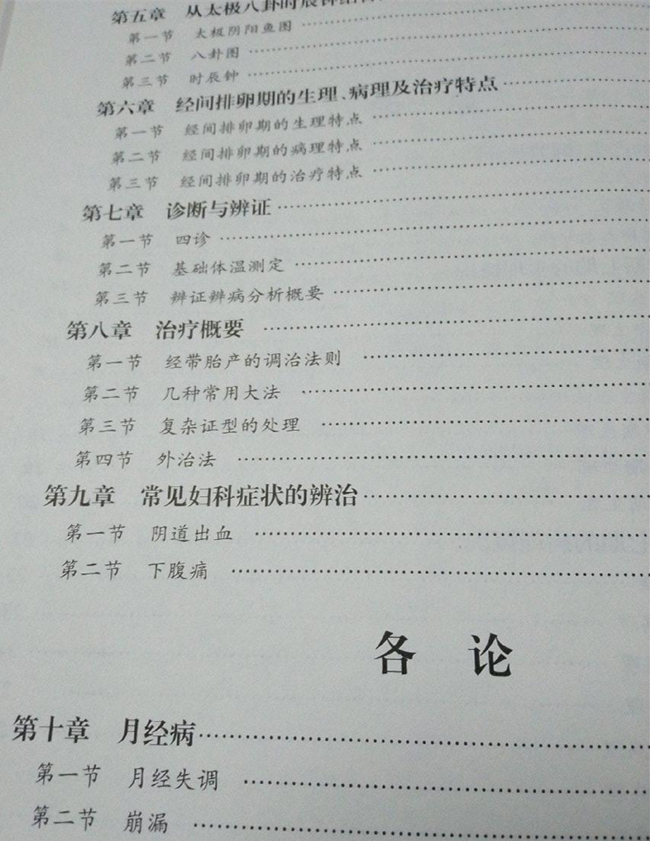 第五章 从太极八卦时辰钟
第一节 太极阴阳鱼图
第二节 八卦图
第三节 时辰钟
第六章 经间排卵期的生理、病理及治疗特点
第一节 经间排卵期的生理特点
第二节 经间排卵期的病理特点
第三节 经间排卵期的治疗特点
第七章 诊断与辨证
第一节 四诊
第二节 基础体温测定
第三节 辨证辨病分析概要
第八章 治疗概要
第一节 经带胎产的调治法则
第二节 几种常用大法
第三节 复杂证型的处理
第四节 外治法
第九章 常见妇科症状的辨治
第一节 阴道出血
第二节 下腹痛
各 论
第十章 月经病
第一节 月经失调
第二节 崩漏